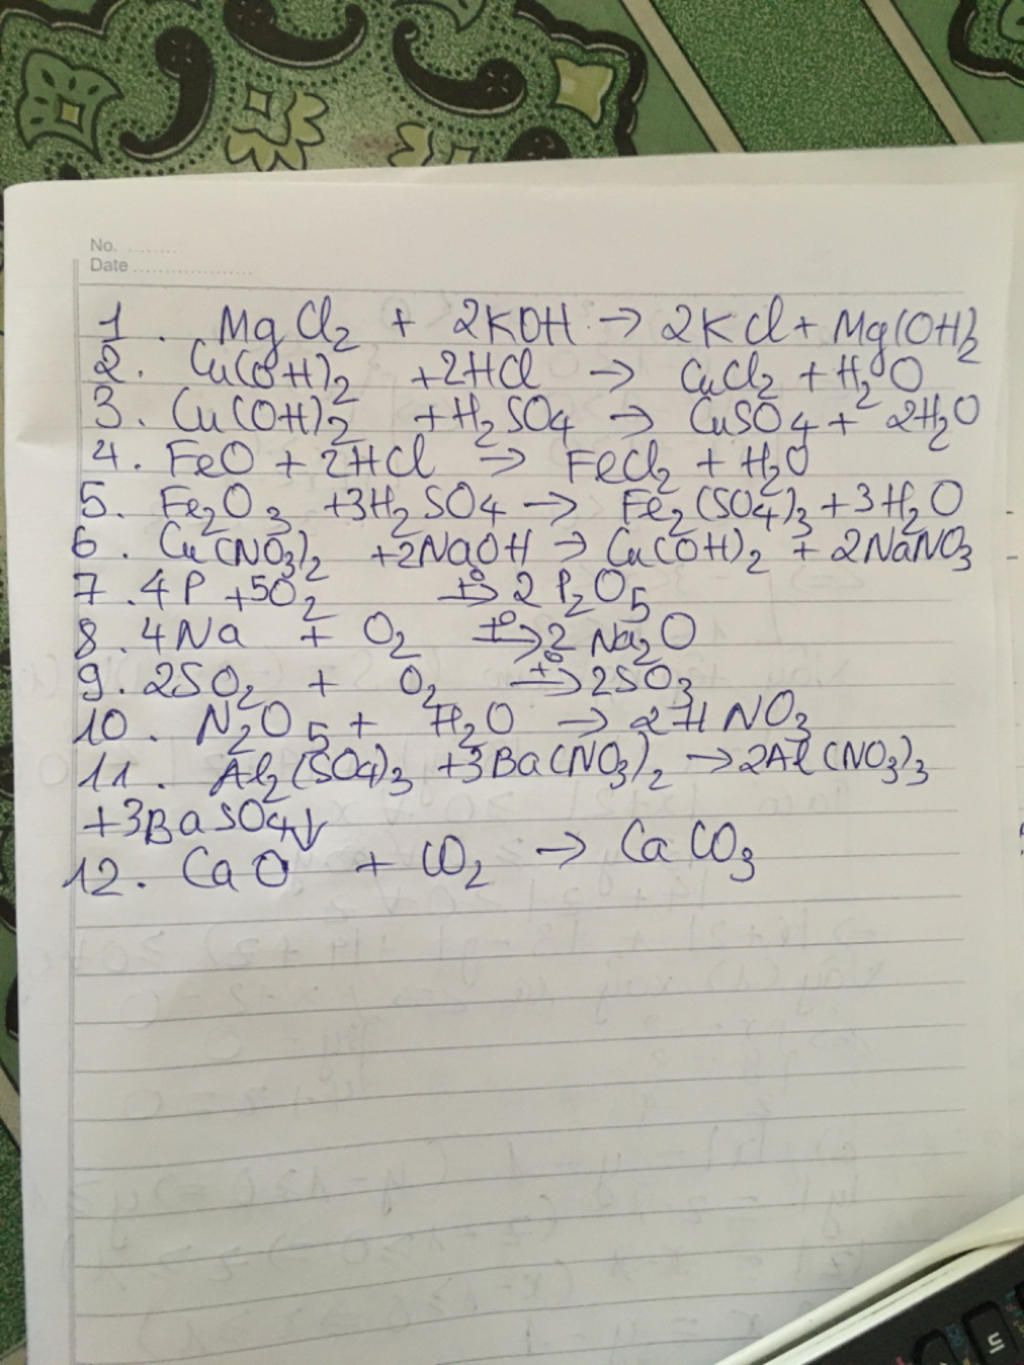 No. ........
Date ....................
1. MgCl2 + 2KOH → 2KCl + Mg(OH)2
2. Cu(OH)2 + 2HCl → CuCl2 + H2O
3. Cu(OH)2 + H2SO4 → CuSO4 + 2H2O
4. FeO + 2HCl → FeCl2 + H2O
5. Fe2O3 + 3H2SO4 → Fe2(SO4)3 + 3H2O
6. Cu(NO3)2 + 2NaOH → Cu(OH)2 + 2NaNO3
7. 4P + 5O2 t°→ 2P2O5
8. 4Na + O2 t°→ 2Na2O
9. 2SO2 + O2 t°→ 2SO3
10. N2O5 + H2O → 2HNO3
11. Al2(SO4)3 + 3Ba(NO3)2 → 2Al(NO3)3
+ 3BaSO4↓
12. CaO + CO2 → CaCO3